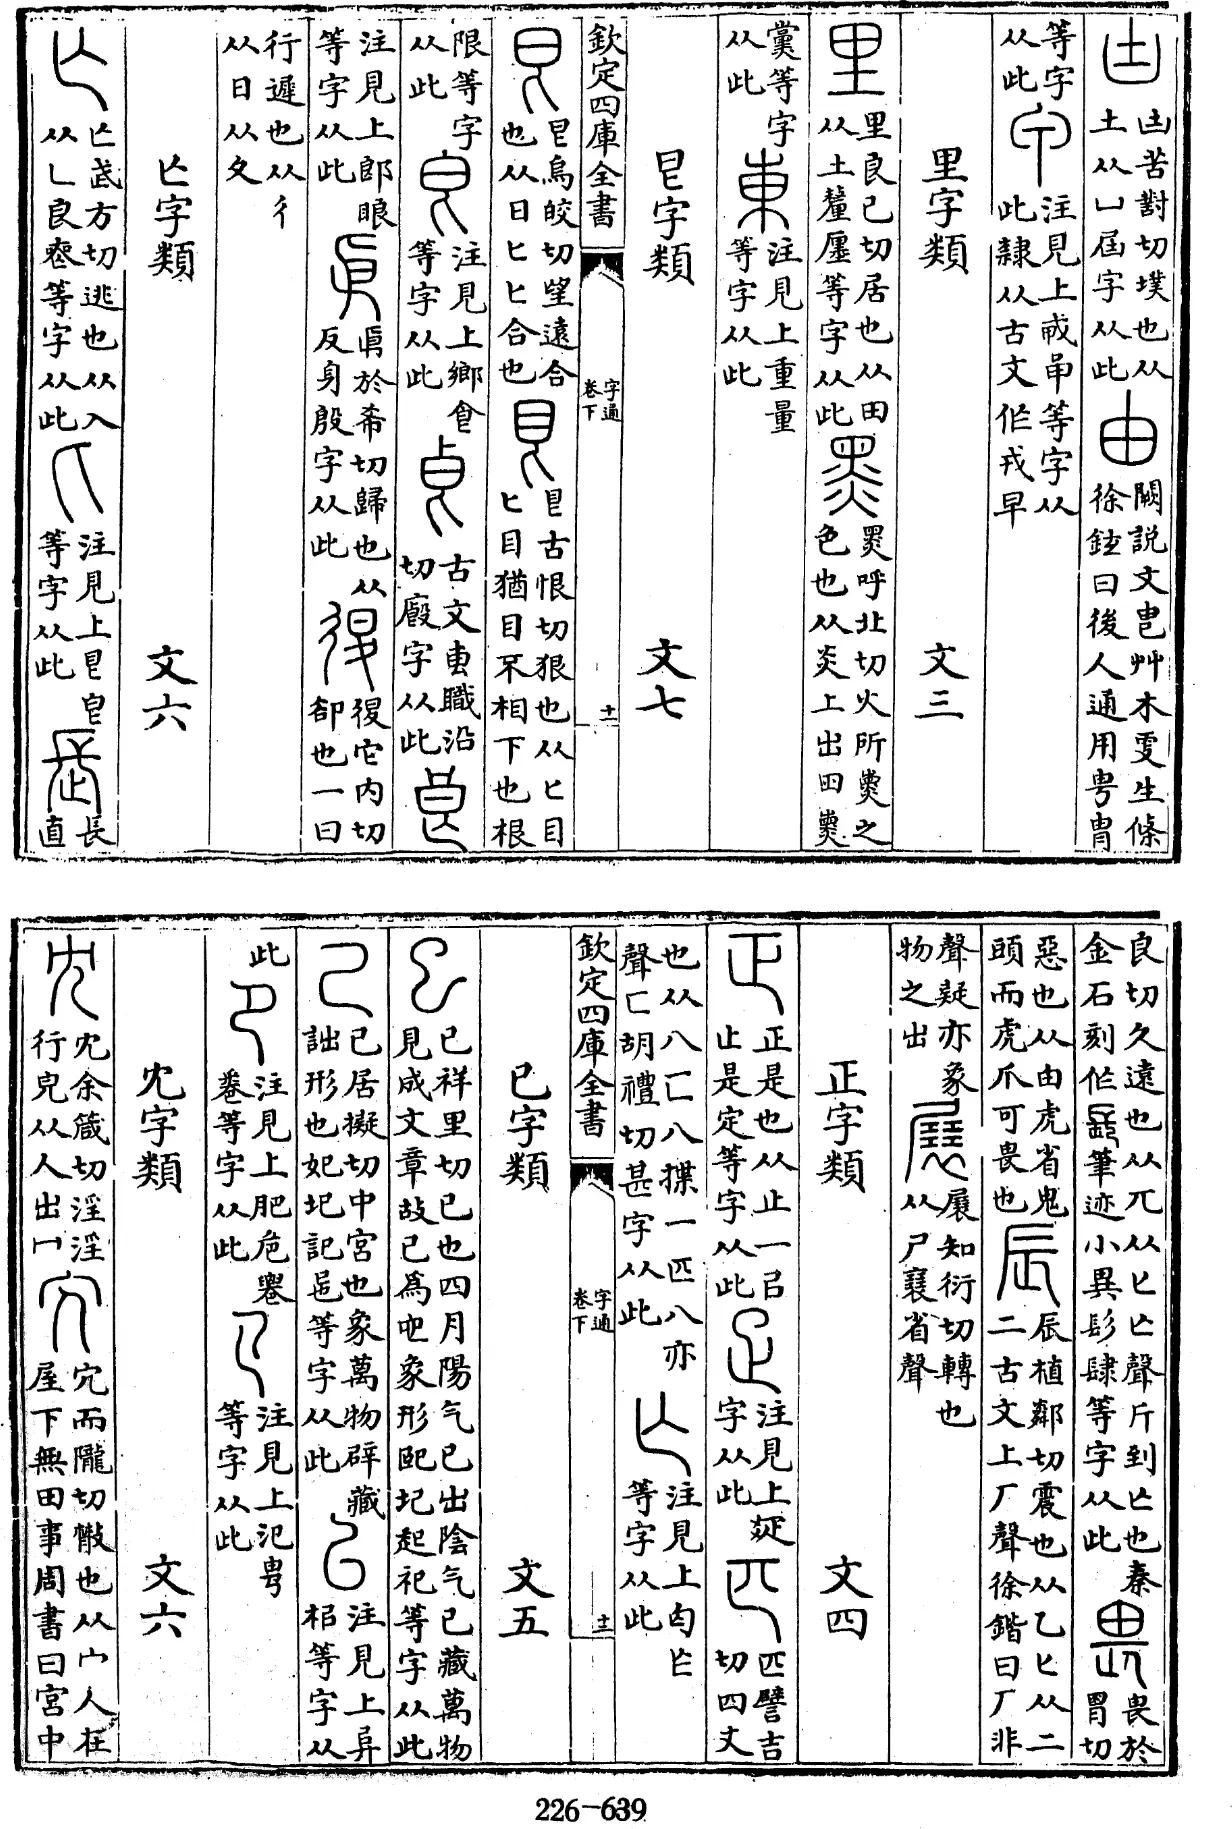 凷 凷苦對切墣也从
土从凵屆字从此 由 闕說文㽕艸木㕅生條
徐鉉曰後人通用甹冑
等字
从此 甲 注見上戓等字从
此隸从古文作戎早
里字類 文三
里 里良已切居也从田
从土釐廛等字从此 黑 黑呼北切火所熏之
色也从炎上出囪熏
黨等字
从此 東 注見上重量
等字从此
㫐字類 文七
欽定四庫全書 字通
卷下 十一
㫐 㫐烏皎切望遠合
也从日匕匕合也 㫔 㫔古恨切狠也从匕目
匕目猶目不相下也根
限等字
从此 皀 注見上鄉食
等字从此 古文叀職沿
切廏字从此
注見上郎眼
等字从此 㐆 㐆於希切歸也从
反身殷字从此 復 復它内切
卻也一曰
行遲也从彳
从日从夊
亾字類 文六
亾 亾武方切逃也从入
从乚良喪等字从此 注見上
等字从此 長 長
直
良切久遠也从兀从匕亾聲斤到亾也秦
金石刻作 筆迹小異髟肆等字从此 畏 畏於
胃切
惡也从甶虎省鬼
頭而虎爪可畏也 辰 辰植鄰切震也从乙匕从二
二古文上厂聲徐鍇曰厂非
聲疑亦象
物之出 㞡 㞡知衍切轉也
从尸襄省聲
正字類 文四
正 正是也从止一㠯
止是定等字从此 疋 注見上
字从此 匹 匹譬吉
切四丈
也从八匚八揲一匹八亦
聲匚胡禮切甚字从此 亾 注見上匃亾
等字从此
欽定四庫全書 字通
卷下 十二
巳字類 文五
巳 巳祥里切已也四月陽气已出陰气已藏萬物
見成文章故巳爲它象形熙圮起祀等字从此
己 己居擬切中宮也象萬物辟藏
詘形也妃圮記邔等字从此 㠯 注見上异
梠等字从
此 卪 注見上肥危㔲
卷等字从此 㔾 注見上氾甹
等字从此
冘字類 文六
冘 冘余箴切淫淫
行皃从人出冂 宂 宂而隴切㪚也从宀人在
屋下無田事周書曰宮中
226-639